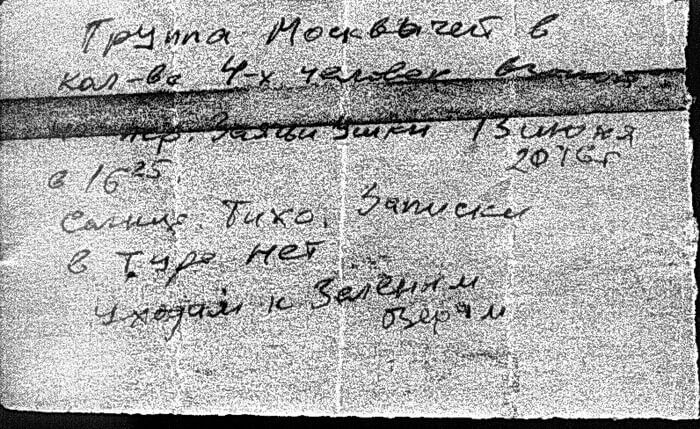 Группа Москвычей в
кол-ве 4-х человек вышла
на пер. Заячьи Ушки 13 июня
2016 г
в 16 25.
Солнце. Тихо. Записки
в туре нет
Уходим к Зелёным
озёрам